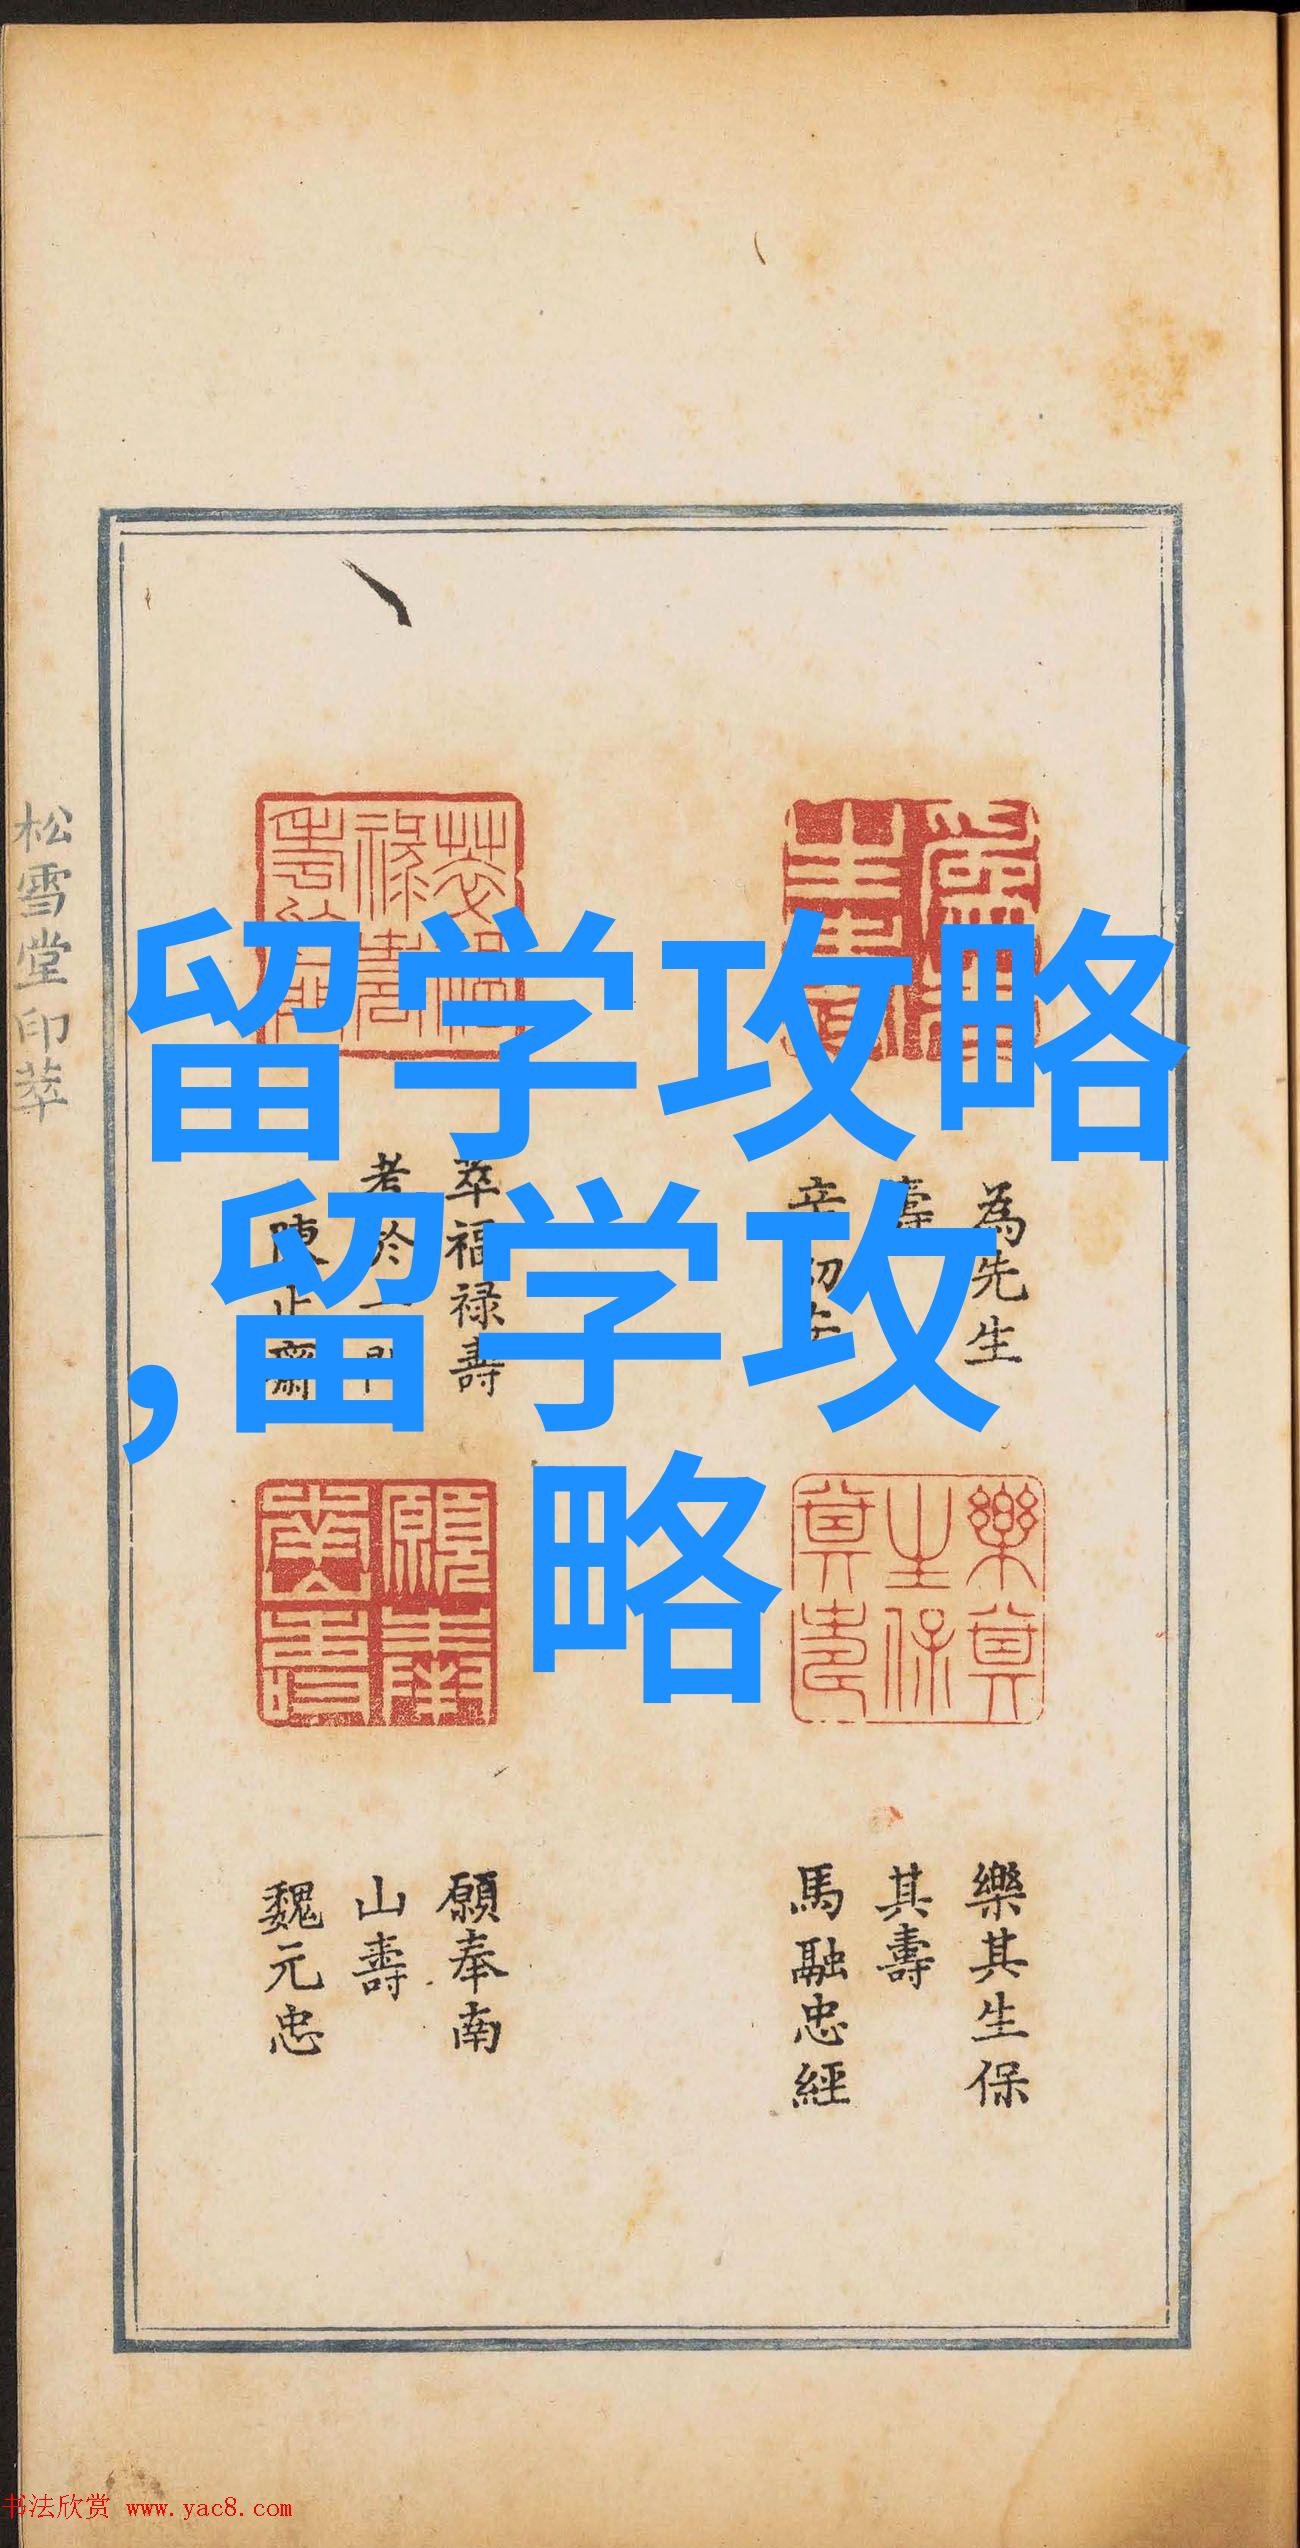 留学攻略
,留学攻
略
松雪堂印萃
為先生
壽
萃福祿壽
樂其生保
其壽
馬融忠經
願奉南
山壽
魏元忠
书法欣赏 www.yac8.com